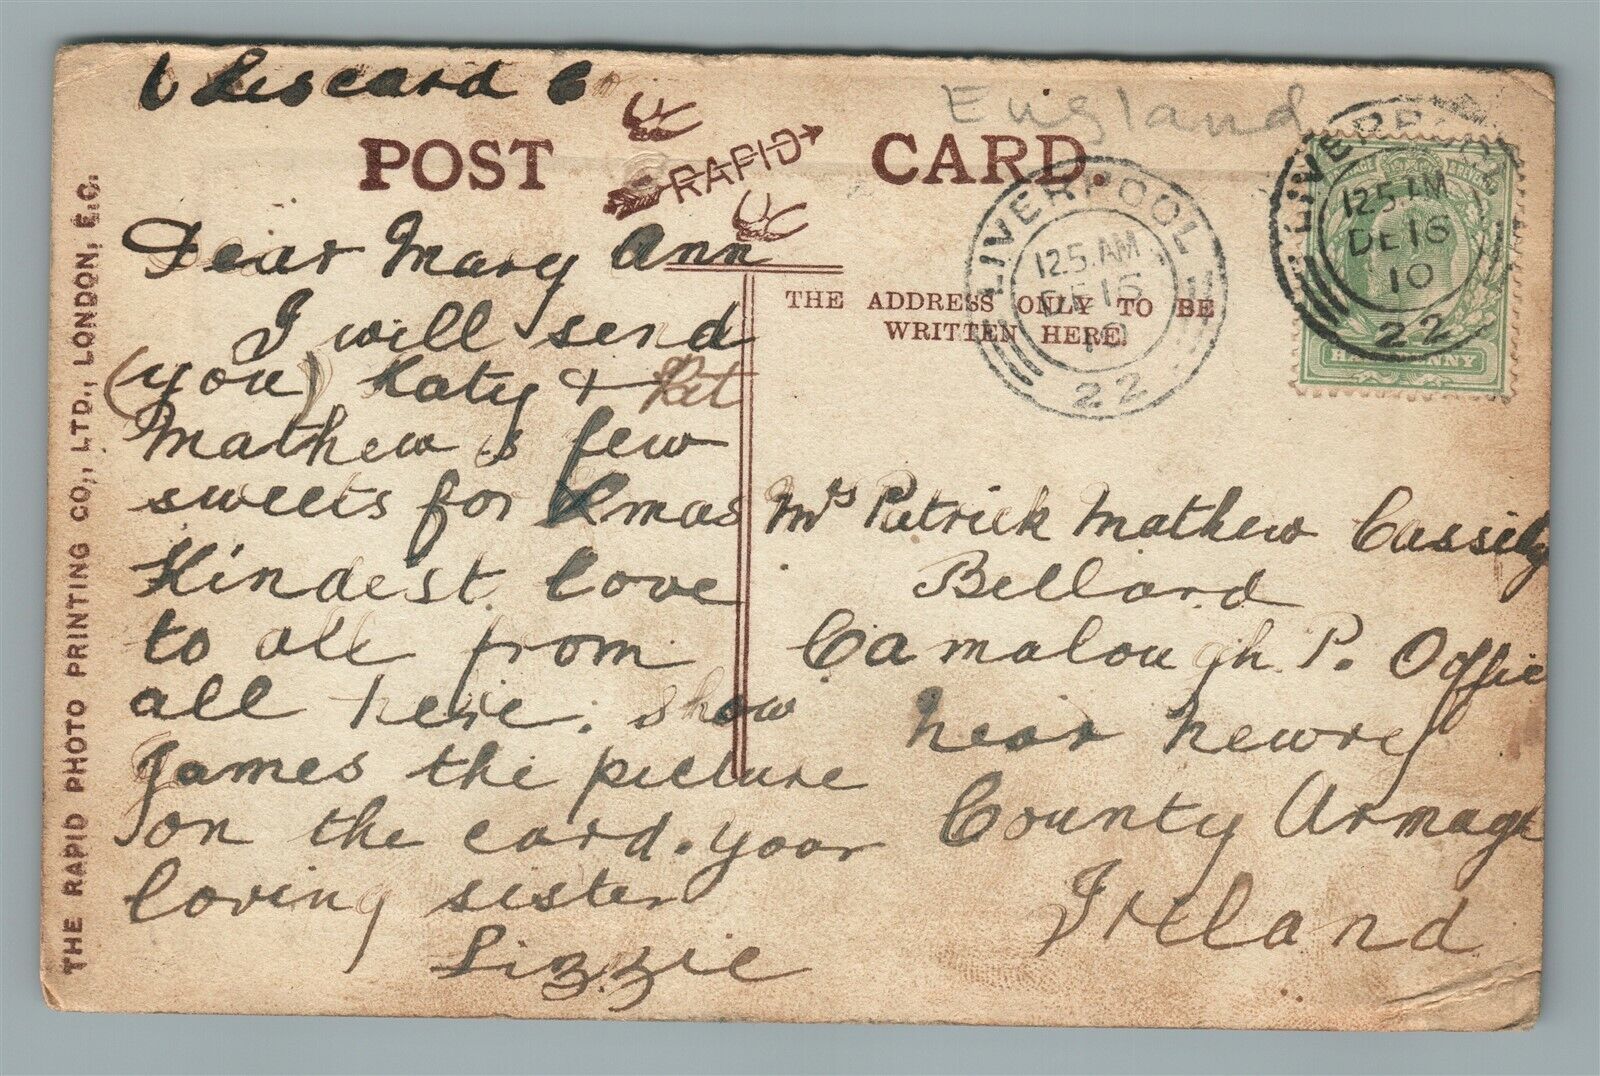 Liscard
England
POST CARD.
RAPID
THE ADDRESS ONLY TO BE
WRITTEN HERE.
LIVERPOOL
12.5.AM
DE 16
10
22
LIVERPOOL
12.5.AM
DE 16
10
22
HALFPENNY
Dear Mary Ann
I will send
(you) Katy &
Mathew s few
sweets for Xmas
Kindest love
to all from
all here. show
James the picture
on the card. your
loving sister
Lizzie
Mrs Patrick Mathew Cassidy
Bellard
Camalough P. Offic
near Newrey
County Armagh
Ireland
THE RAPID PHOTO PRINTING CO., LTD., LONDON, E.C.